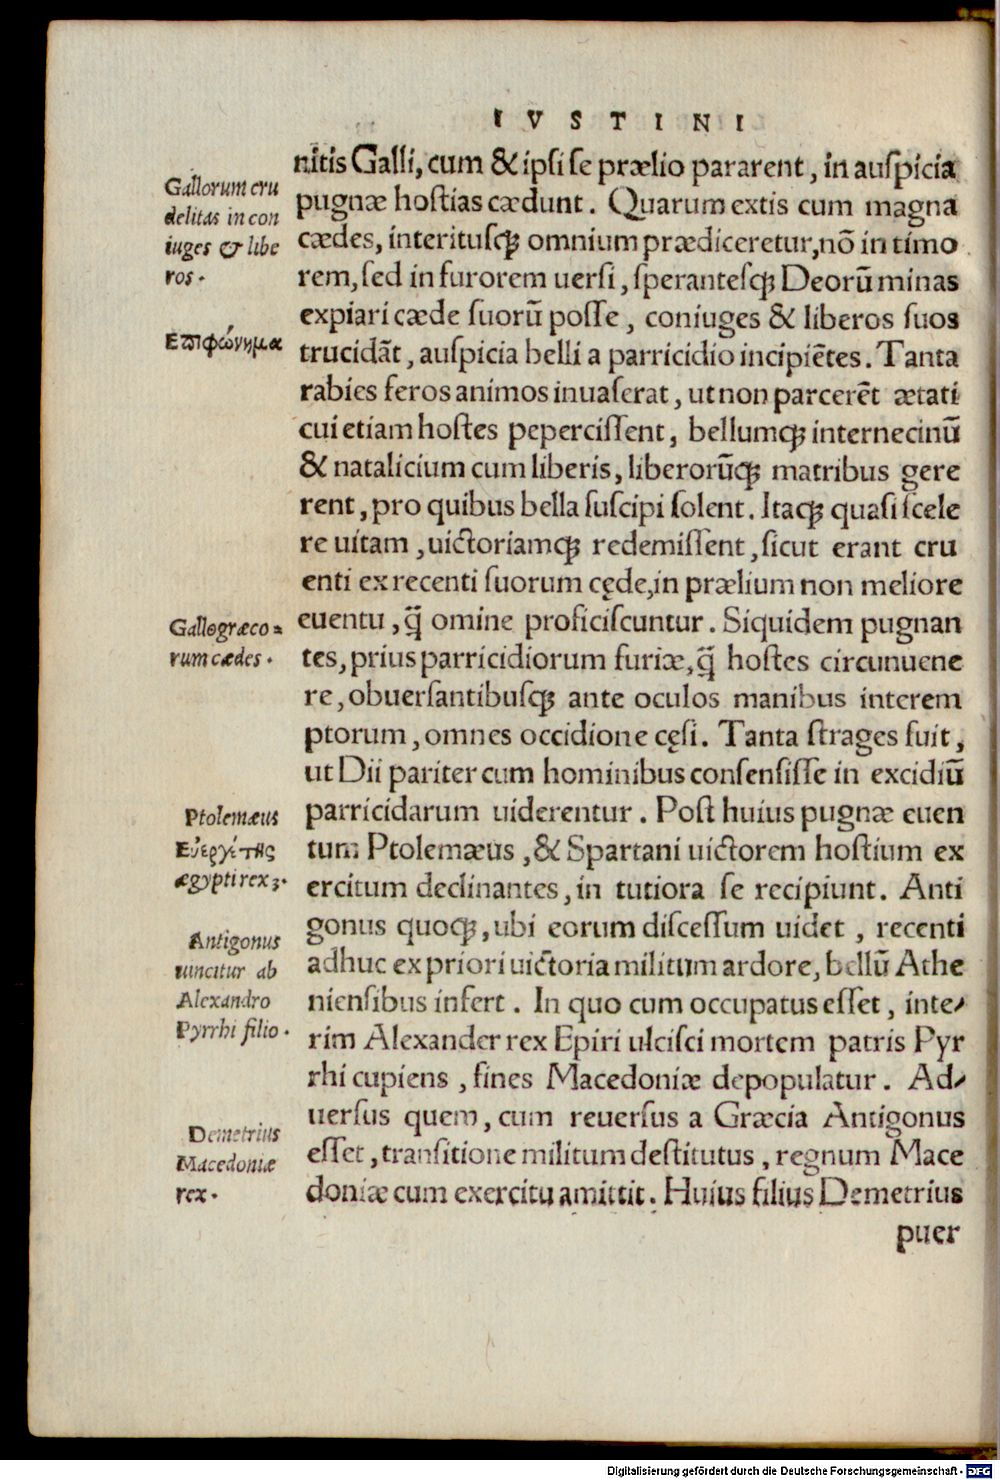 IVSTINI
nitis Galli, cum & ipsi se prælio pararent, in auspicia
pugnæ hostias cædunt. Quarum extis cum magna
cædes, interitusq; omnium prædiceretur, nō in timo
rem, sed in furorem uersi, sperantesq; Deorū minas
expiari cæde suorū posse, coniuges & liberos suos
trucidāt, auspicia belli a parricidio incipiētes. Tanta
rabies feros animos inuaserat, ut non parcerēt ætati
cui etiam hostes pepercissent, bellumq; internecinū
& natalicium cum liberis, liberorūq; matribus gere
rent, pro quibus bella suscipi solent. Itaq; quasi scele
re uitam, uictoriamq; redemissent, sicut erant cru
enti ex recenti suorum cęde, in prælium non meliore
euentu, q̃ omine proficiscuntur. Siquidem pugnan
tes, prius parricidiorum furiæ, q̃ hostes circunuene
re, obuersantibusq; ante oculos manibus interem
ptorum, omnes occidione cęsi. Tanta strages fuit,
ut Dii pariter cum hominibus consensisse in excidiū
parricidarum uiderentur. Post huius pugnæ euen
tum Ptolemæus, & Spartani uictorem hostium ex
ercitum declinantes, in tutiora se recipiunt. Anti
gonus quoq;, ubi eorum discessum uidet, recenti
adhuc ex priori uictoria militum ardore, bellū Athe
niensibus infert. In quo cum occupatus esset, inte-
rim Alexander rex Epiri ulcisci mortem patris Pyr
rhi cupiens, fines Macedoniæ depopulatur. Ad-
uersus quem, cum reuersus a Græcia Antigonus
esset, transitione militum destitutus, regnum Mace
doniæ cum exercitu amittit. Huius filius Demetrius
puer
Gallorum cru
delitas in con
iuges & libe
ros.
Επιφώνημα
Gallogræco=
rum cædes.
Ptolemæus
Εὐεργέτης
ægypti rex 3.
Antigonus
uincitur ab
Alexandro
Pyrrhi filio.
Demetrius
Macedoniæ
rex.
Digitalisierung gefördert durch die Deutsche Forschungsgemeinschaft - DFG